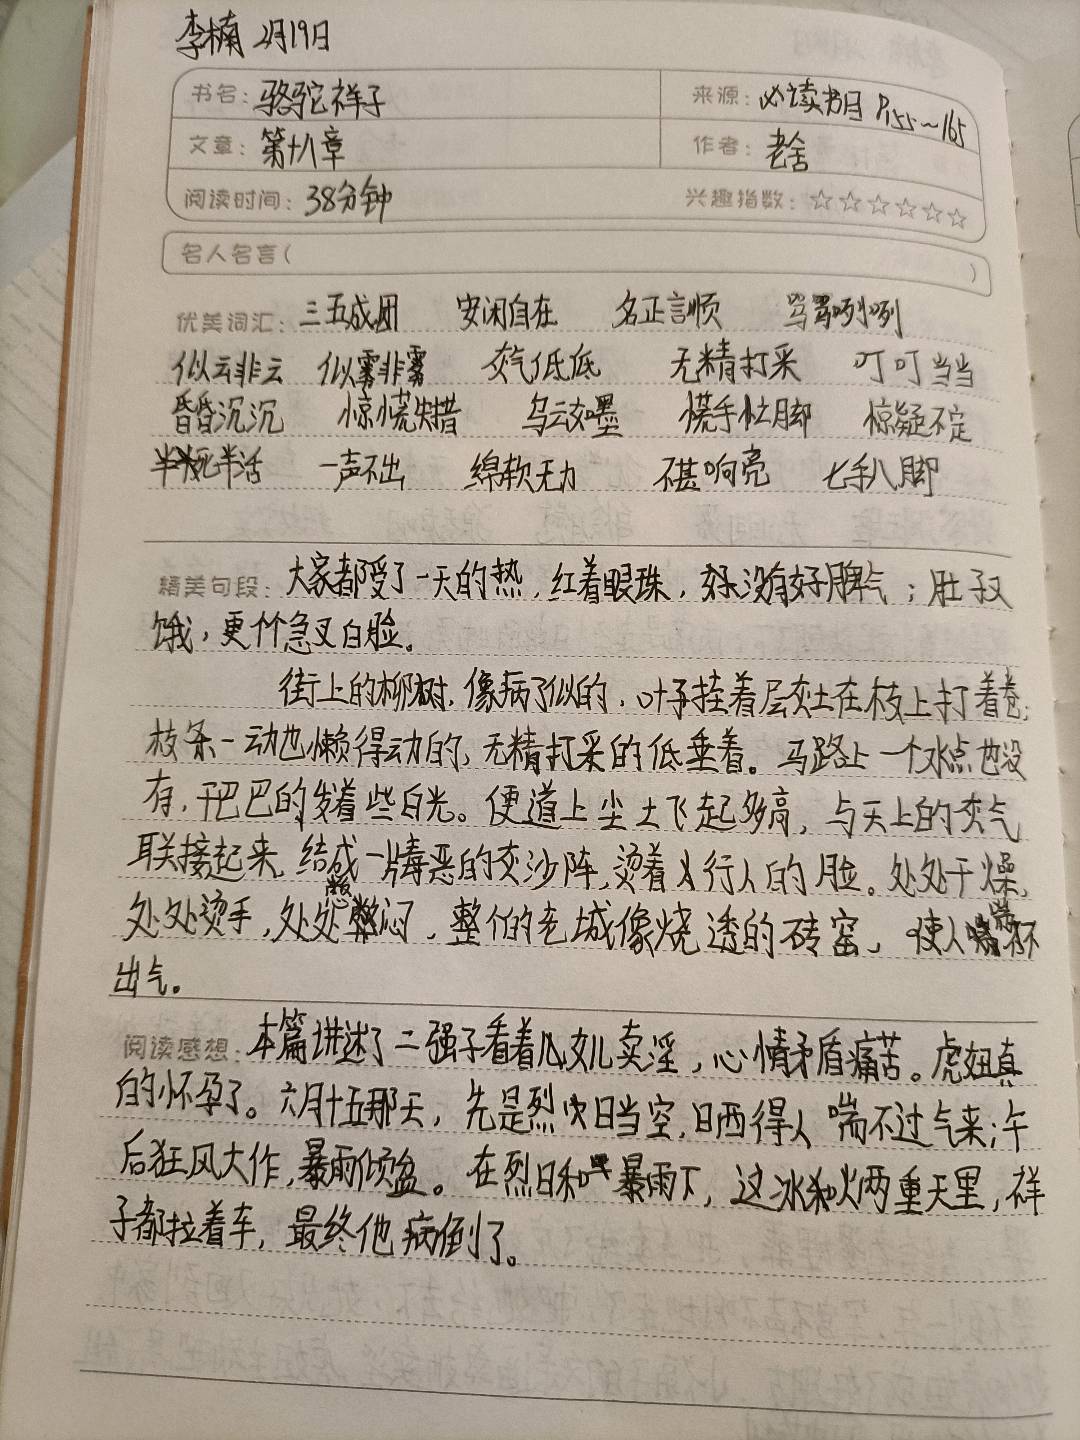 李楠 2月19日
书名：骆驼祥子 来源：必读书目 P155~165
文章：第十八章 作者：老舍
阅读时间：38分钟 兴趣指数：☆☆☆☆☆☆
名人名言（ ）
优美词汇：三五成团 安闲自在 名正言顺 骂骂咧咧
似云非云 似雾非雾 灰气低低 无精打采 叮叮当当
昏昏沉沉 惊慌失措 乌云如墨 慌手忙脚 惊疑不定
半死半活 一声不出 绵软无力 不甚响亮 七手八脚
精美句段：大家都受了一天的热，红着眼珠，都没有好脾气；肚子又
饿，更个个急叉白脸。
街上的柳树，像病了似的，叶子挂着层灰土在枝上打着卷；
枝条一动也懒得动的，无精打采的低垂着。马路上一个水点也没
有，干巴巴的发着些白光。便道上尘土飞起多高，与天上的灰气
联接起来，结成一片毒恶的灰沙阵，烫着行人的脸。处处干燥，
处处烫手，处处憋闷，整个的老城像烧透的砖窑，使人喘不
出气。
阅读感想：本篇讲述了二强子看着女儿卖淫，心情矛盾痛苦。虎妞真
的怀孕了。六月十五那天，先是烈日当空，日晒得人喘不过气来；午
后狂风大作，暴雨倾盆。在烈日和暴雨下，这冰火两重天里，祥
子都拉着车，最终他病倒了。